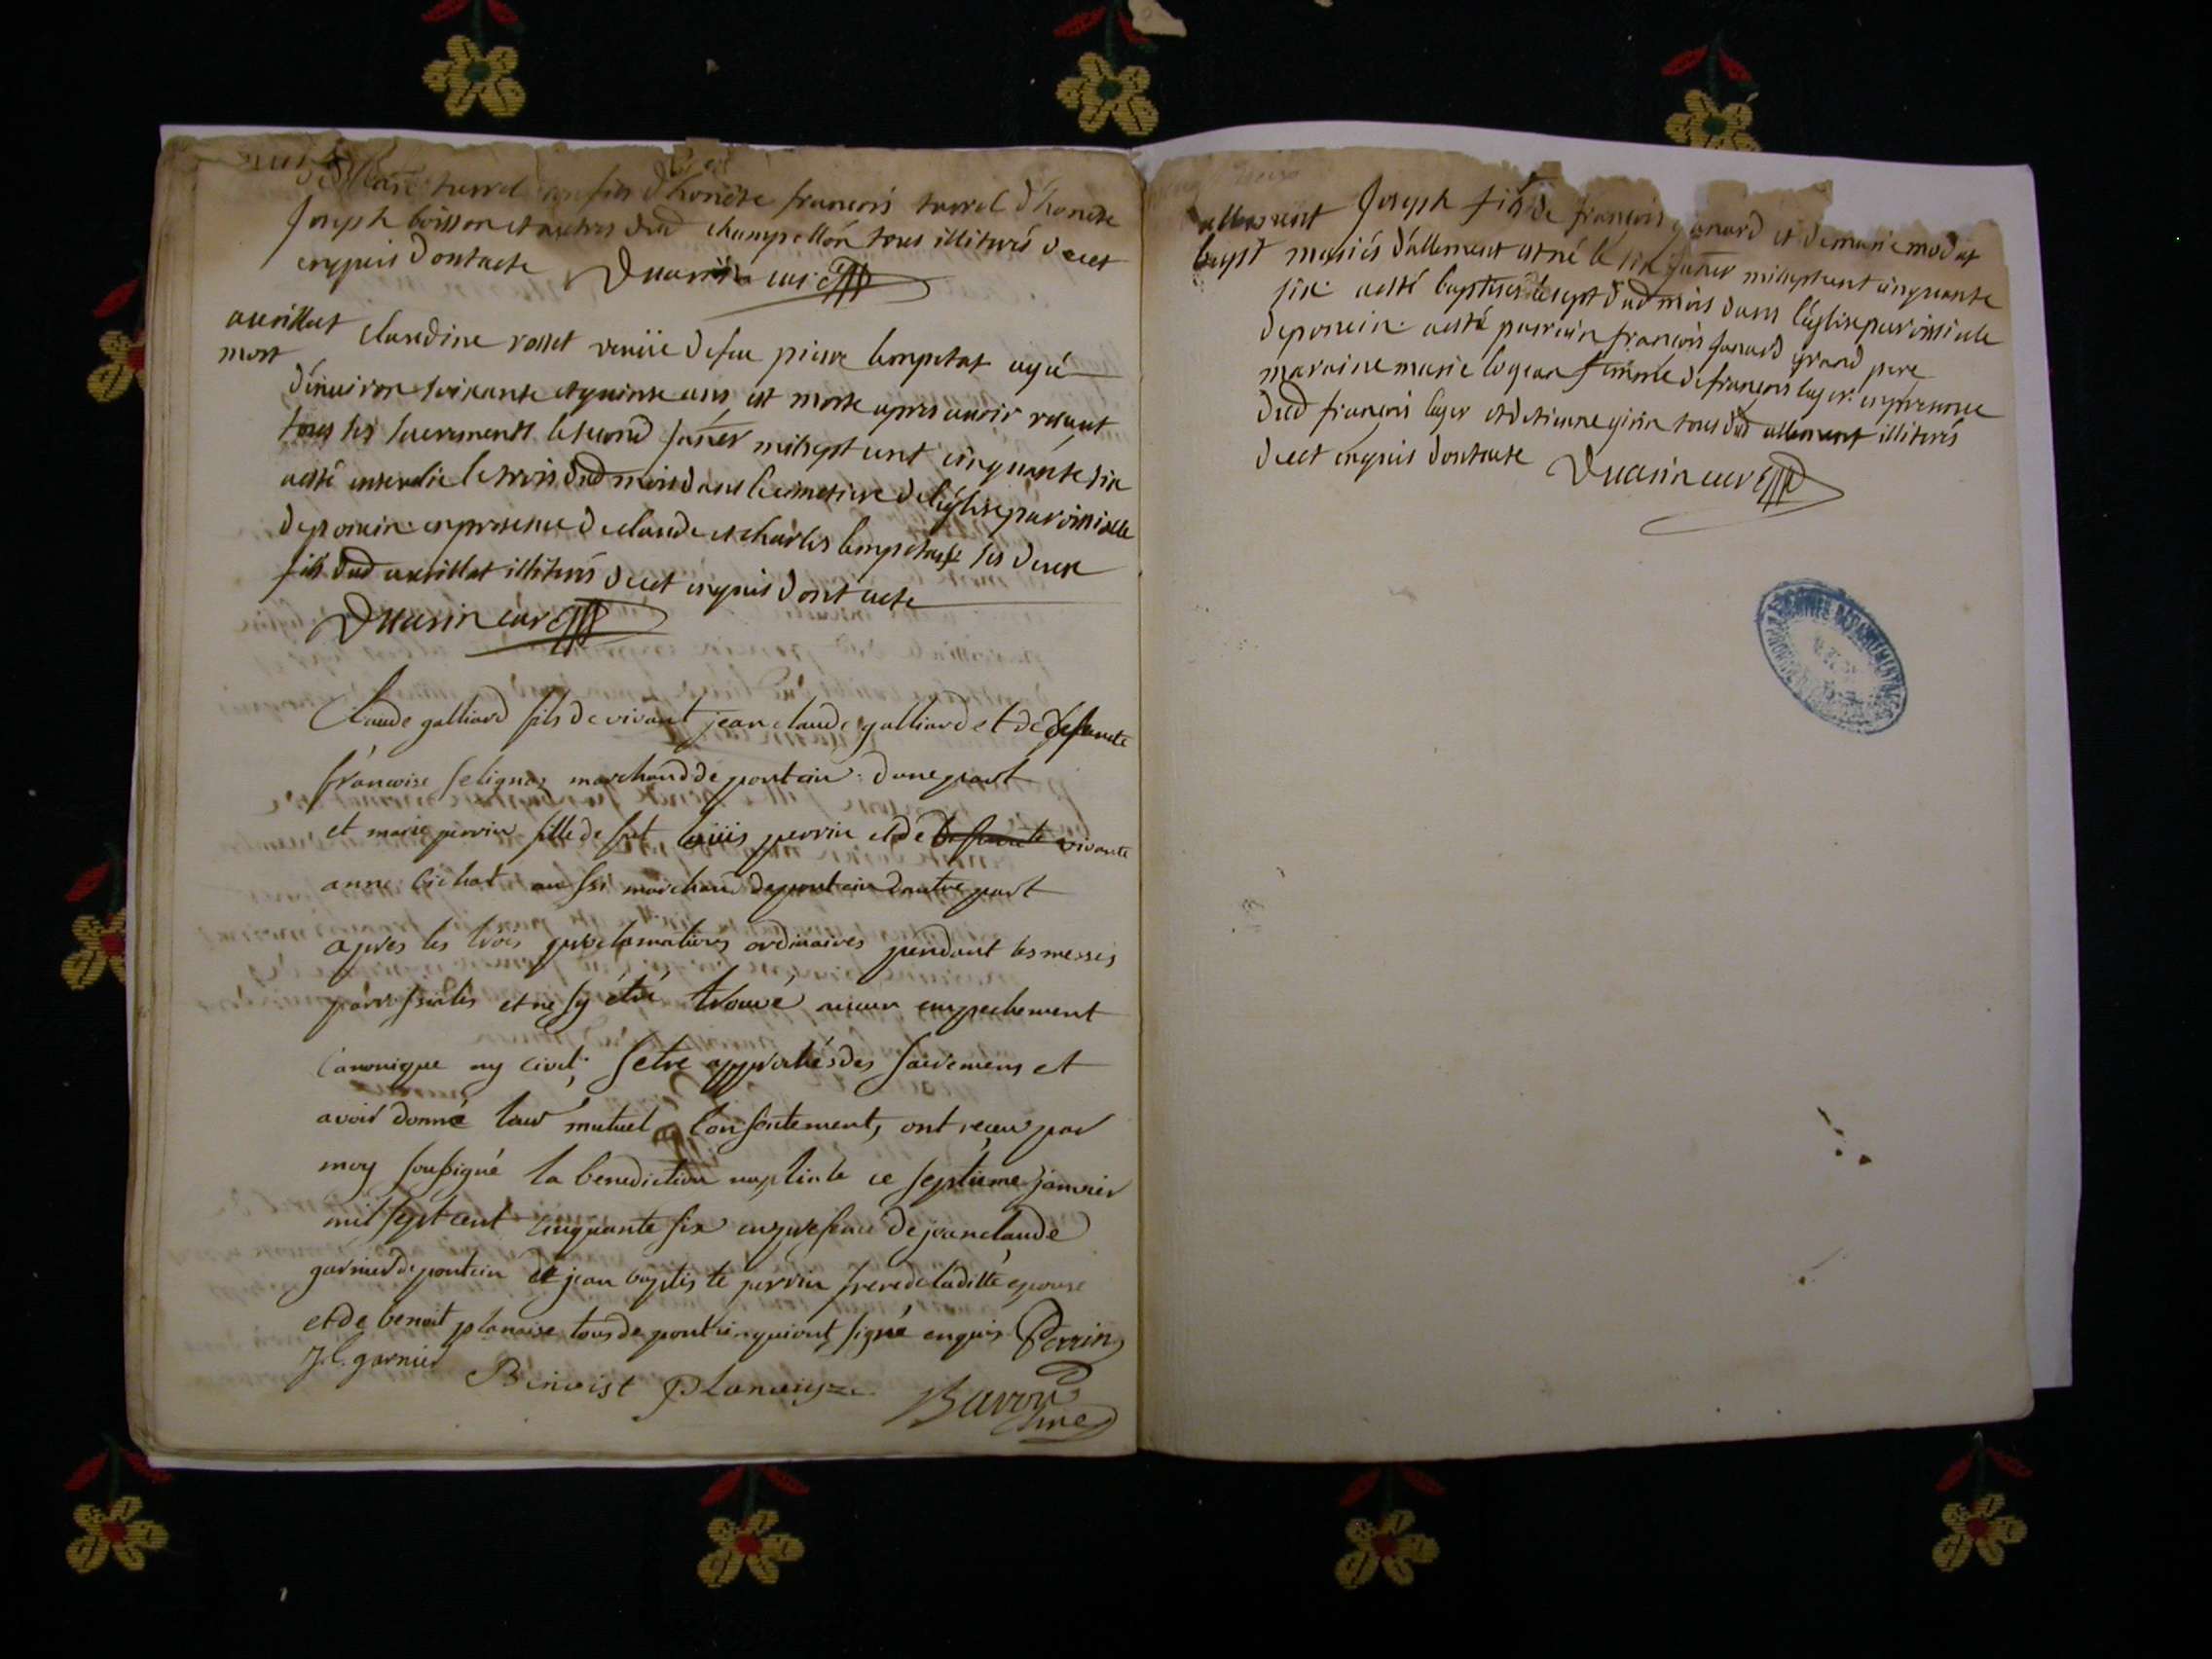 turrel fils d'honete francois turrel d'honete
Joseph boisson et autres dud champollon tous illiterés de cet
enquis dont acte Duarin curé
avrillat Claudine rosset veuve de feu pierre lempetat agé
mort d'enuiron soixante et quinse ans est morte apres auoir reseut
tous les sacrements le second janer mil sept cent cinquante six
a esté enseuelie le trois dud mois dans le cimetiere de l'église paroissialle
de poncin en presence de claude et charles lempetat ses deux
fils dud avrillat illiterés de cet enquis dont acte
Duarin curé
Claude galliard fils de vivant jean claude galliard et de defuncte
francoise marchand de pontcin d'une part
et marie perrin fille de fut loüis perrin et de vivante
anne bichat aussi marchand de pontcin d'autre part
apres les trois proclamations ordinaires pendant les messes
paroissiales et ne sy étré trouvé aucun empechement
canonique ny civil. setre approchés des sacremens et
avoir donné leur mutuel consentement, ont receu par
moy soussigné la benediction nuptiale ce septieme janvier
mil sept cent cinquante six en presence de jean claude
garnier de pontcin et jean baptiste perrin frere de laditte epouse
et de benoit planaise tous de pontcin qui ont signé enquis Perrin
J.C. garnier Benoist Planaisze Bavoux
Curé
allement Joseph fils de francois et de marie modat
bapt mariés d'allement est né le six janer mil sept cent cinquante
six a esté baptisé le sept dud mois dans l'église paroissiale
de poncin a esté parrain francois grand pere
maraine marie logear femme de francois lager en presence
dud francois lager et d'etienne girin tous dud allement illiterés
de cet enquis dont acte Duarin curé